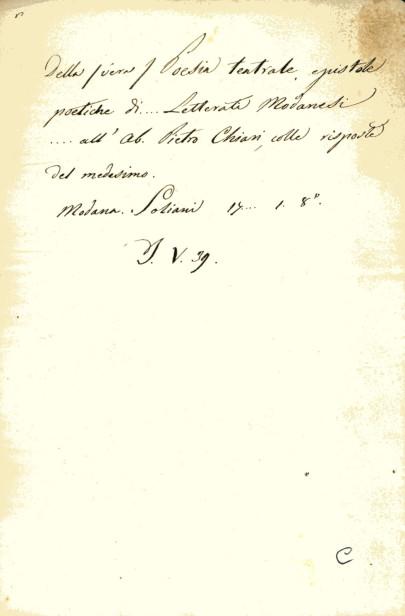 Della (vera) Poesia teatrale, epistole
poetiche di.... Letterati Modanesi
.... all' Ab. Pietro Chiari, colle risposte
del medesimo.
Modana. Soliani 17... 1. 8°.
J. V. 39.
C